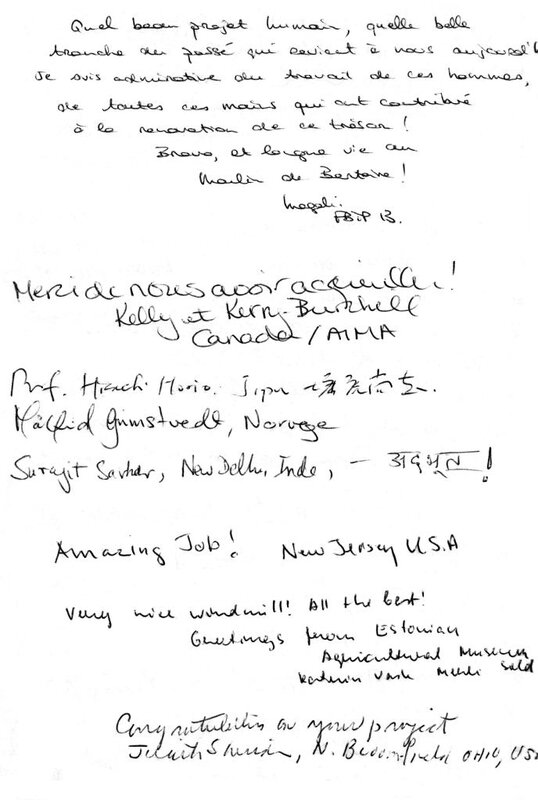 Quel beau projet humain, quelle belle
tranche du passé qui revient à nous aujourd'h
Je suis admirative du travail de ces hommes,
de toutes ces mains qui ont contribué
à la renovation de ce trésor !
Bravo, et longue vie au
Moulin de Bertaire !
Magali.
13.
Merci de nous avoir accueillie !
Kelly et Kerry Burchell
Canada / AIMA
Prof. Horio. Japan 堀尾尚志.
Grimstvedt, Norvege
Surajit Sarkar, New Delhi, Inde, - अदभूत !
Amazing Job! New Jersey U.S.A
Very nice windmill! All the best!
Greetings from Estonian
Agricultural Museum
Merli Sild
Congratulations on your project
N. Bloomfield OHIO, USA